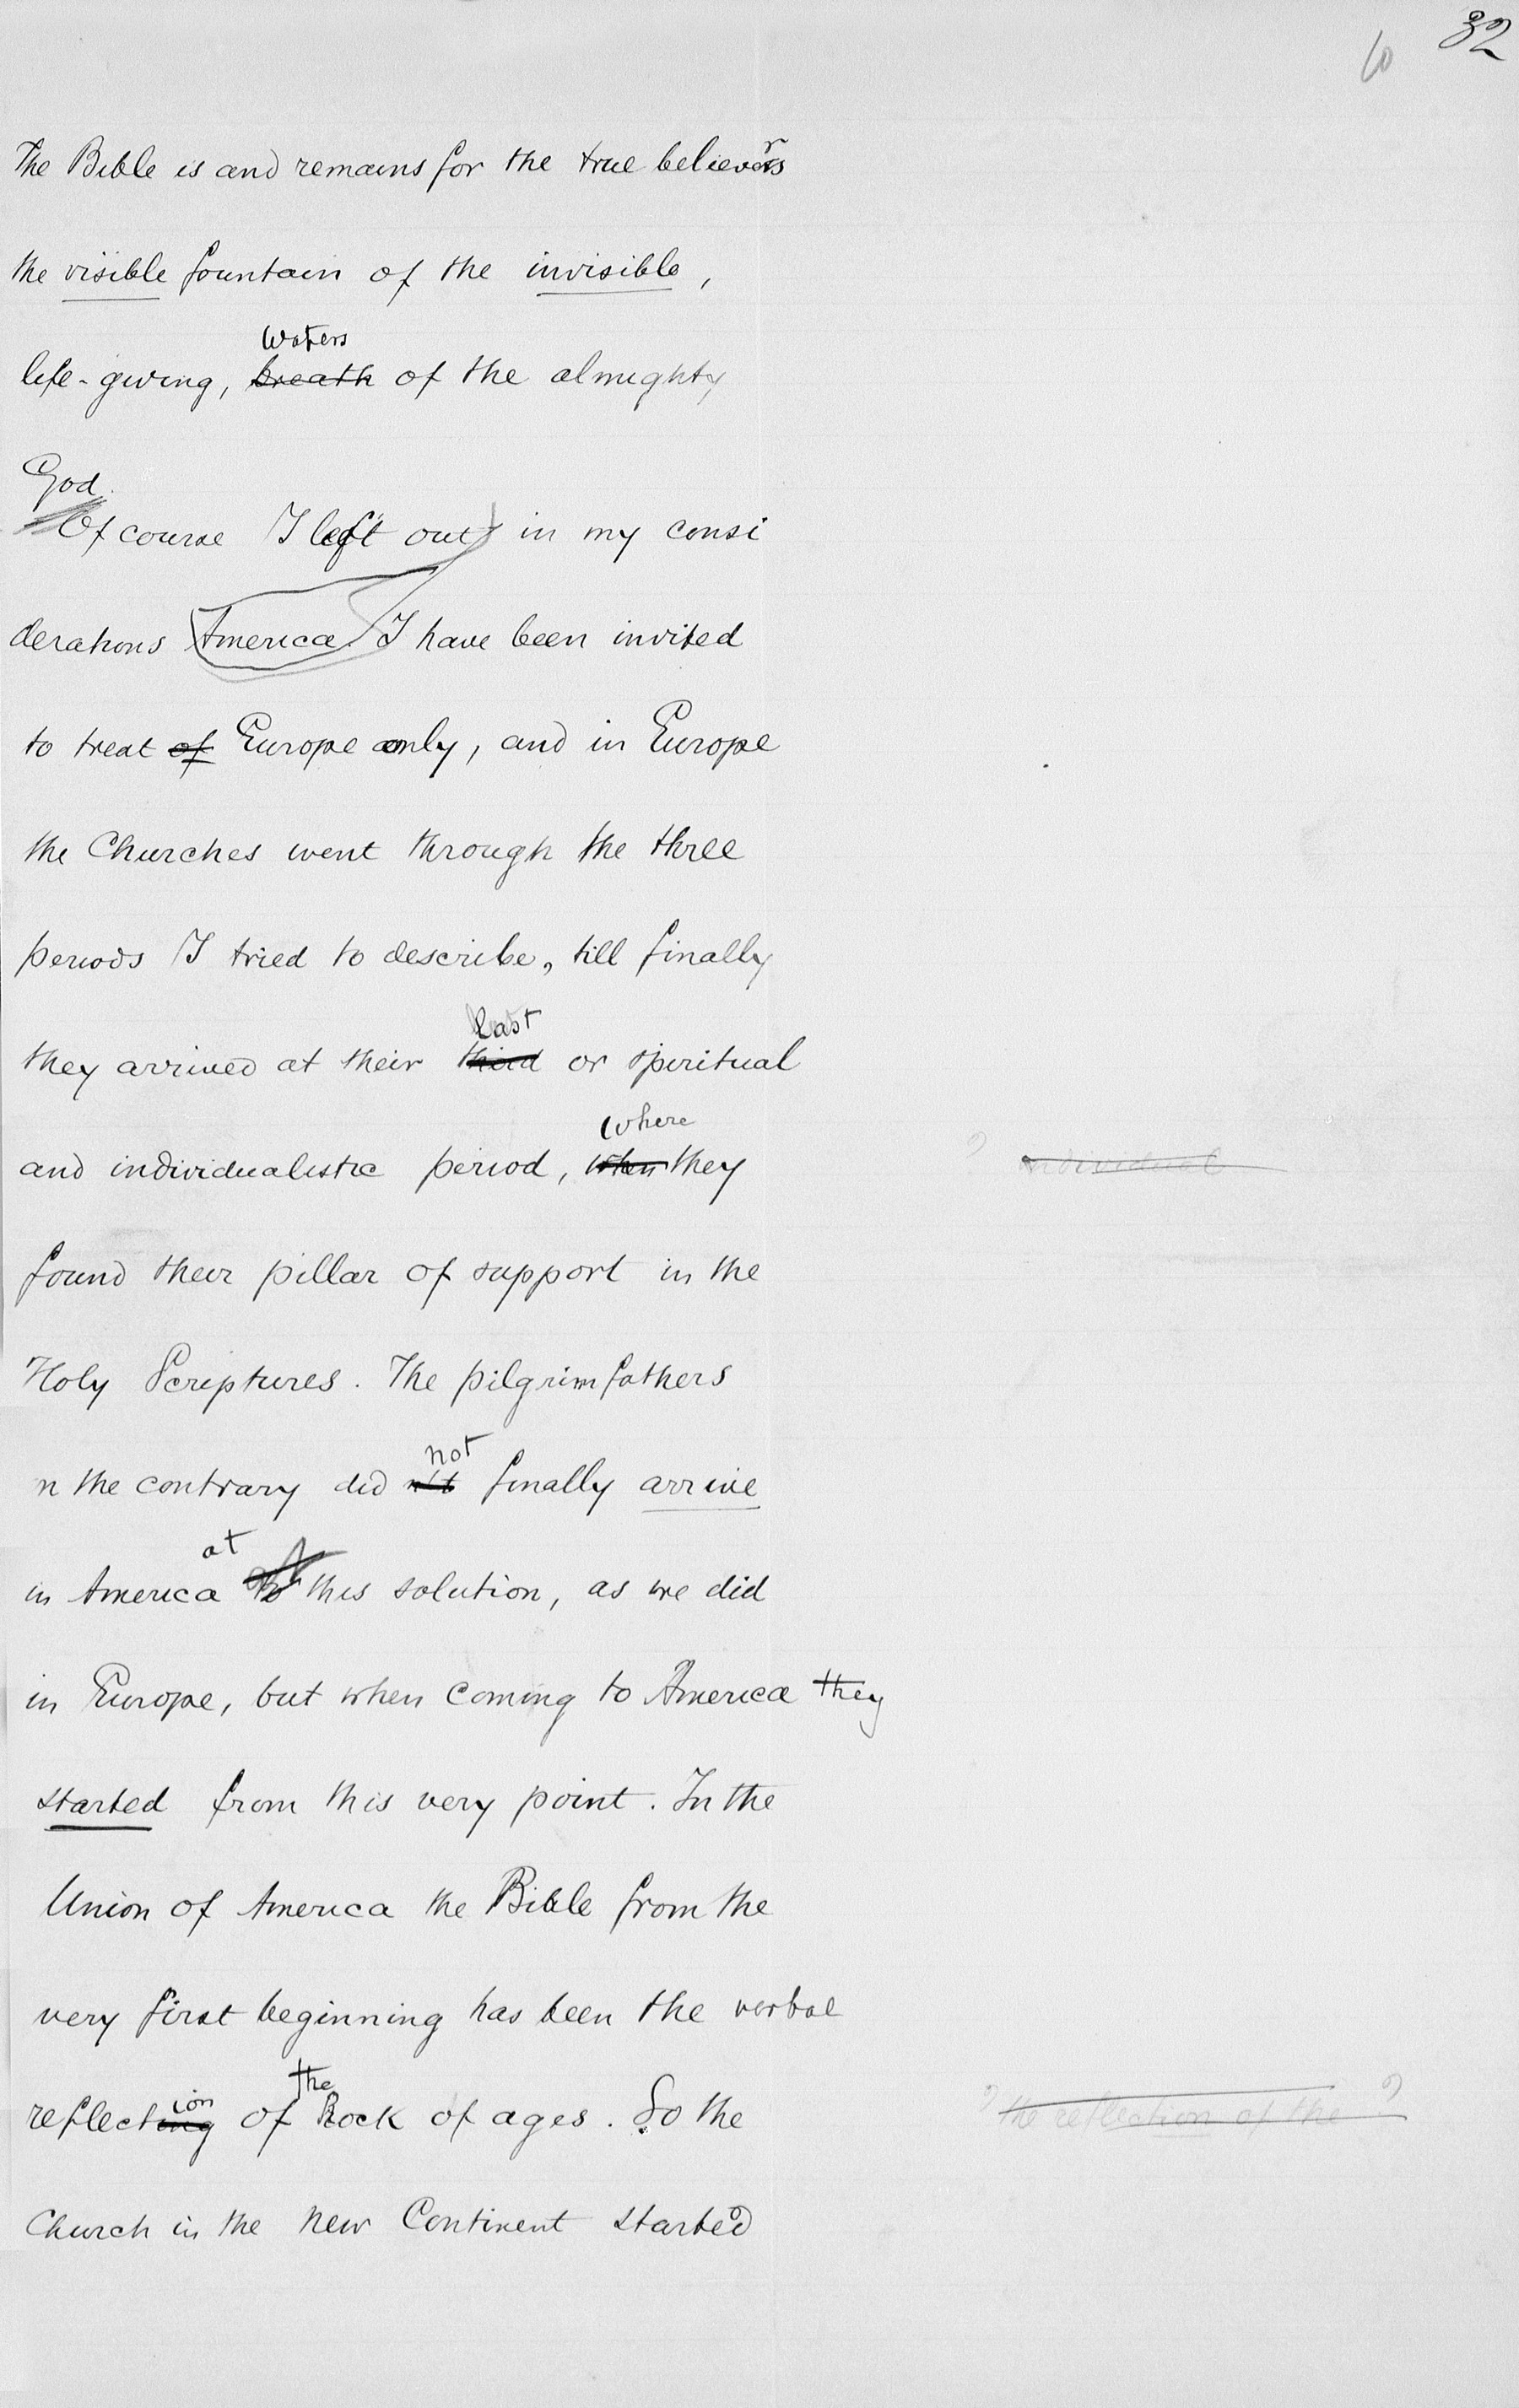 32
10
The Bible is and remains for the true believers
the visible fountain of the invisible,
waters
life-giving, breath of the almighty
God.
Of course I left out in my consi
derations America. I have been invited
to treat of Europe only, and in Europe
the Churches went through the three
periods I tried to describe, till finally
last
they arrived at their third or spiritual
where
and individualistic period, when they
individual
found their pillar of support in the
Holy Scriptures. The pilgrimfathers
n the contrary did not finally arrive
not
at
in America to this solution, as we did
in Europe, but when coming to America they
started from this very point. In the
Union of America the Bible from the
very first beginning has been the verbal
ion the
reflecting of Rock of ages. So the
? the reflection of the ?
Church in the new Continent started